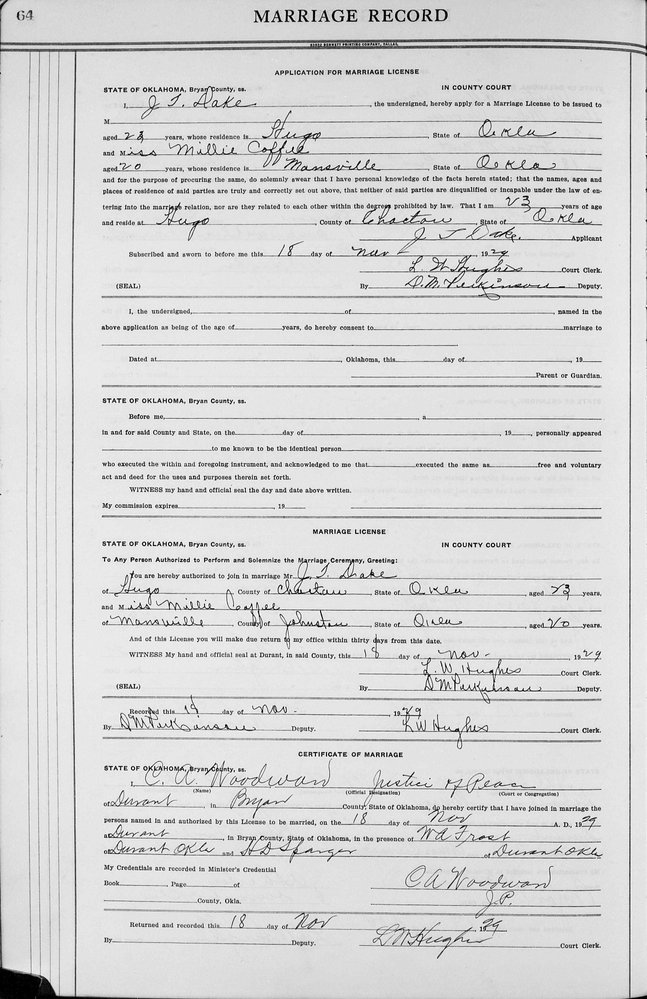 64
MARRIAGE RECORD
APPLICATION FOR MARRIAGE LICENSE
STATE OF OKLAHOMA, Bryan County, ss. IN COUNTY COURT
I, J T. Dake, the undersigned, hereby apply for a Marriage License to be issued to
M
aged 23 years, whose residence is Hugo, State of Okla
and Miss Millie Coffee
aged 20 years, whose residence is Mansville, State of Okla
and for the purpose of procuring the same, do solemnly swear that I have personal knowledge of the facts herein stated; that the names, ages and
places of residence of said parties are truly and correctly set out above, that neither of said parties are disqualified or incapable under the law of en-
tering into the marriage relation, nor are they related to each other within the degrees prohibited by law. That I am 23 years of age
and reside at Hugo County of Choctaw, State of Okla
J T Dake. Applicant
Subscribed and sworn to before me this 18 day of Nov, 1929
L. W Hughes Court Clerk.
(SEAL) By D. M. Perkinson Deputy.
I, the undersigned, of, named in the
above application as being of the age of years, do hereby consent to marriage to
Dated at, Oklahoma, this day of, 19
Parent or Guardian.
STATE OF OKLAHOMA, Bryan County, ss.
Before me, a
in and for said County and State, on the day of, 19, personally appeared
to me known to be the identical person
who executed the within and foregoing instrument, and acknowledged to me that executed the same as free and voluntary
act and deed for the uses and purposes therein set forth.
WITNESS my hand and official seal the day and date above written.
My commission expires, 19
MARRIAGE LICENSE
STATE OF OKLAHOMA, Bryan County, ss. IN COUNTY COURT
To Any Person Authorized to Perform and Solemnize the Marriage Ceremony, Greeting:
You are hereby authorized to join in marriage Mr. J. T. Drake
of Hugo County of Choctaw, State of Okla, aged 23 years,
and Miss Millie Coffee
of Mansville County of Johnston, State of Okla, aged 20 years.
And of this License you will make due return to my office within thirty days from this date.
WITNESS My hand and official seal at Durant, in said County, this 18 day of Nov-, 1929
L. W. Hughes Court Clerk.
(SEAL) By D M Perkinson Deputy.
Recorded this 18 day of Nov-, 1929
By D M Perkinson Deputy. L W Hughes Court Clerk.
CERTIFICATE OF MARRIAGE
STATE OF OKLAHOMA, Bryan County, ss.
I, C. A. Woodward Justice of Peace
(Name) (Official Designation) (Court or Congregation)
of Durant, in Bryan County, State of Oklahoma, do hereby certify that I have joined in marriage the
persons named in and authorized by this License to be married, on the 18 day of Nov A. D., 1929
at Durant, in Bryan County, State of Oklahoma, in the presence of W A Frost
of Durant Okla and H D Spanger of Durant Okla
My Credentials are recorded in Minister's Credential
Book, Page of C A Woodward
County, Okla. J. P.
Returned and recorded this 18 day of Nov, 1929
By Deputy. L W Hughes Court Clerk.